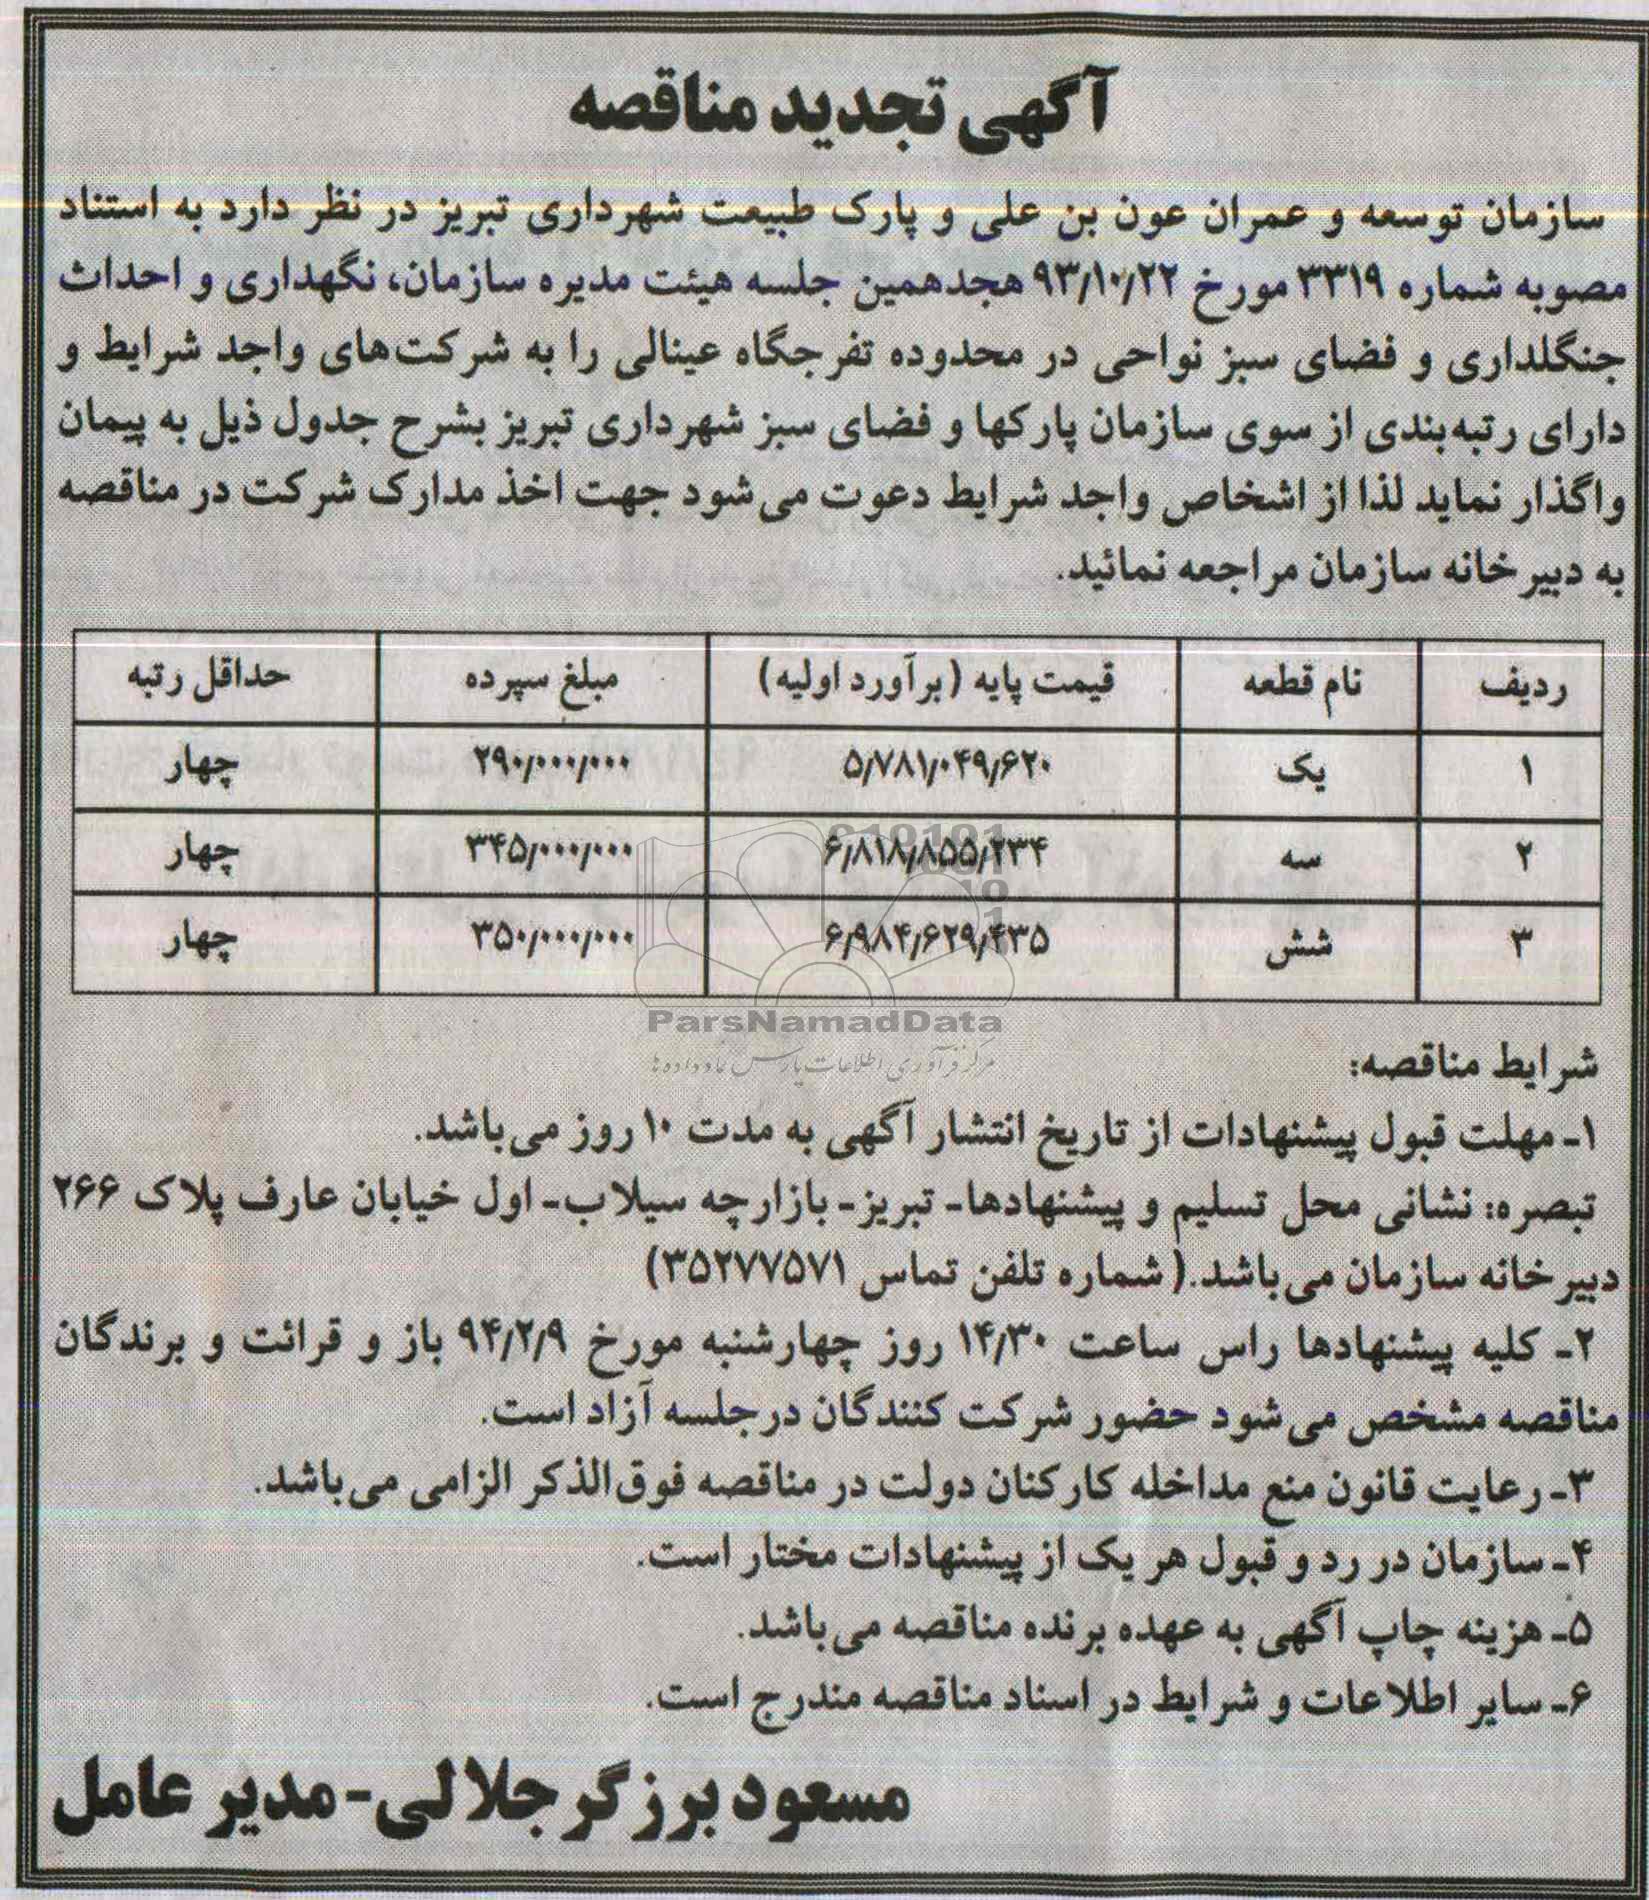 آگهی تجدید مناقصه
سازمان توسعه و عمران عون بن علی و پارک طبیعت شهرداری تبریز در نظر دارد به استناد
مصوبه شماره ۳۳۱۹ مورخ ۹۳/۱۰/۲۲ هجدهمین جلسه هیئت مدیره سازمان، نگهداری و احداث
جنگلداری و فضای سبز نواحی در محدوده تفرجگاه عینالی را به شرکت‌های واجد شرایط و
دارای رتبه‌بندی از سوی سازمان پارکها و فضای سبز شهرداری تبریز بشرح جدول ذیل به پیمان
واگذار نماید لذا از اشخاص واجد شرایط دعوت می‌شود جهت اخذ مدارک شرکت در مناقصه
به دبیرخانه سازمان مراجعه نمائید.
ردیف نام قطعه قیمت پایه (برآورد اولیه) مبلغ سپرده حداقل رتبه
۱ یک ۵/۷۸۱/۰۴۹/۶۲۰ ۲۹۰/۰۰۰/۰۰۰ چهار
۲ سه ۶/۸۱۸/۸۵۵/۲۳۴ ۳۴۵/۰۰۰/۰۰۰ چهار
۳ شش ۶/۹۸۴/۶۲۹/۴۳۵ ۳۵۰/۰۰۰/۰۰۰ چهار
ParsNamadData
مرکز فرآوری اطلاعات پارس نماد داده ها
شرایط مناقصه:
۱ـ مهلت قبول پیشنهادات از تاریخ انتشار آگهی به مدت ۱۰ روز می‌باشد.
تبصره: نشانی محل تسلیم و پیشنهادها- تبریز- بازارچه سیلاب- اول خیابان عارف پلاک ۲۶۶
دبیرخانه سازمان می‌باشد.(شماره تلفن تماس ۳۵۲۷۷۵۷۱)
۲ـ کلیه پیشنهادها راس ساعت ۱۴/۳۰ روز چهارشنبه مورخ ۹۴/۲/۹ باز و قرائت و برندگان
مناقصه مشخص می‌شود حضور شرکت کنندگان درجلسه آزاد است.
۳ـ رعایت قانون منع مداخله کارکنان دولت در مناقصه فوق‌الذکر الزامی می‌باشد.
۴ـ سازمان در رد و قبول هر یک از پیشنهادات مختار است.
۵ـ هزینه چاپ آگهی به عهده برنده مناقصه می‌باشد.
۶ـ سایر اطلاعات و شرایط در اسناد مناقصه مندرج است.
مسعود برزگر جلالی- مدیر عامل